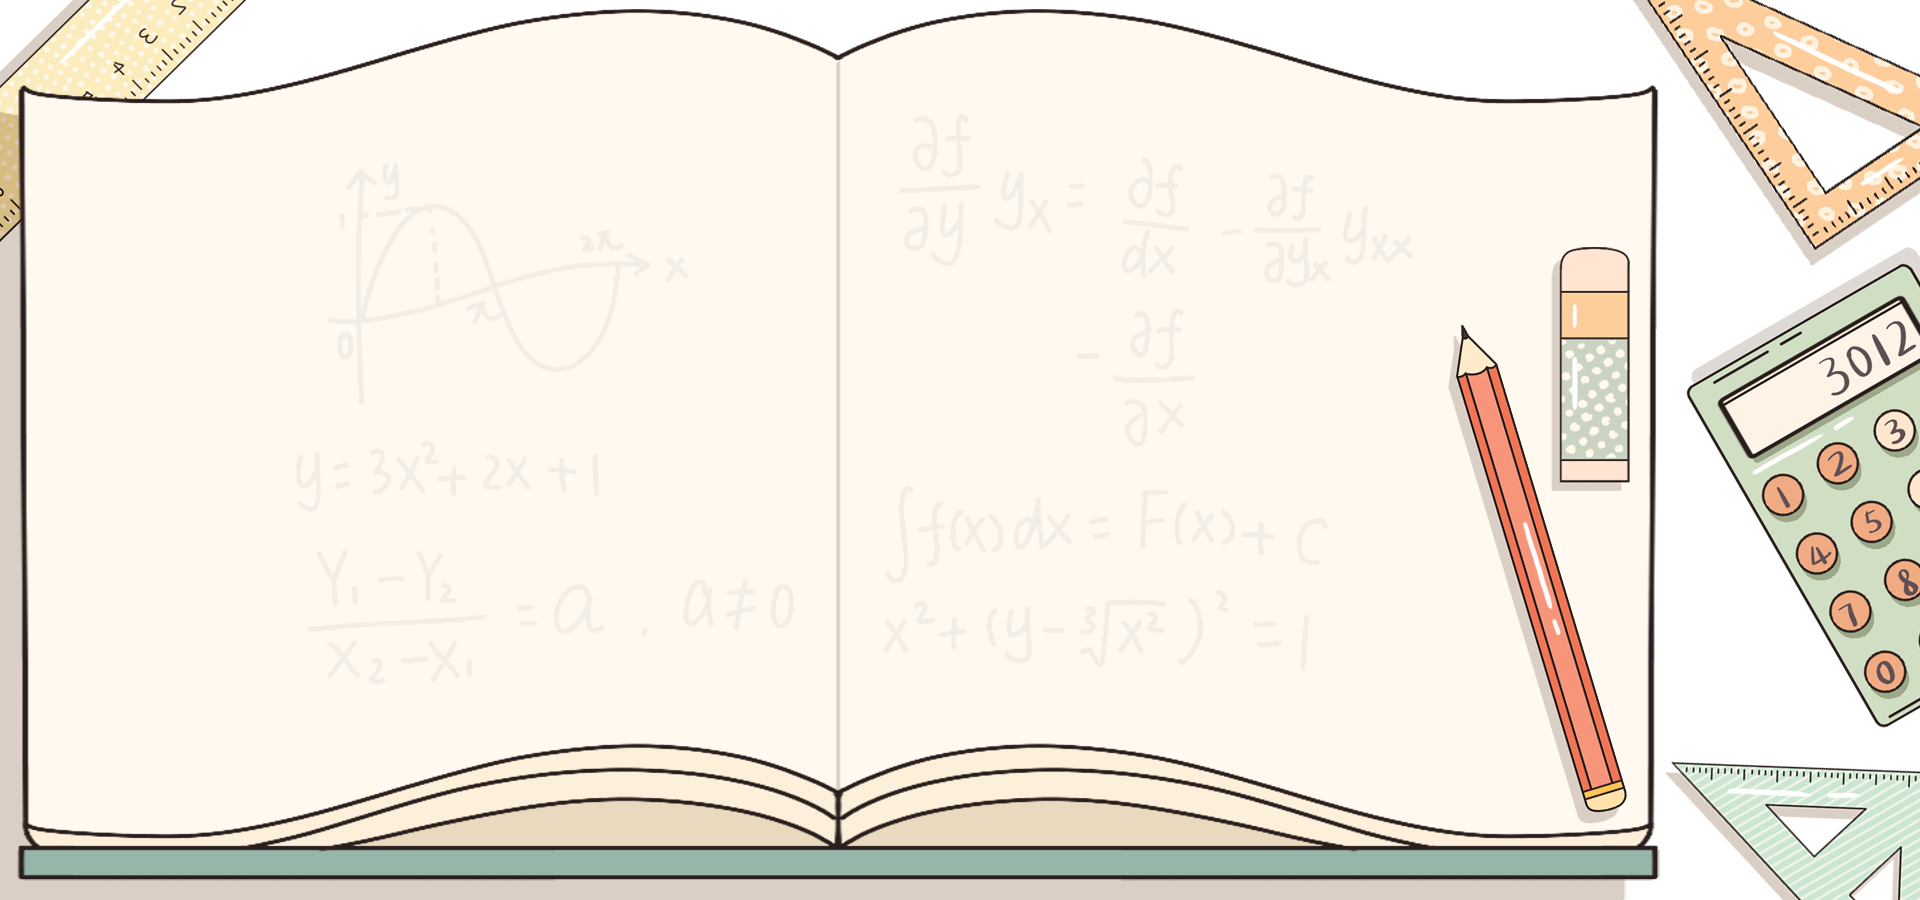 y
1
2π
x
π
0
y = 3x² + 2x + 1
Y₁ - Y₂
X₂ - X₁
= a . a ≠ 0
∂f/∂y yₓ = ∂f/dx - ∂f/∂yₓ yₓₓ
- ∂f/∂x
∫f(x)dx = F(x) + C
x² + (y - ∛x²)² = 1
3
4
3012
1 2 3
4 5
7 8
0